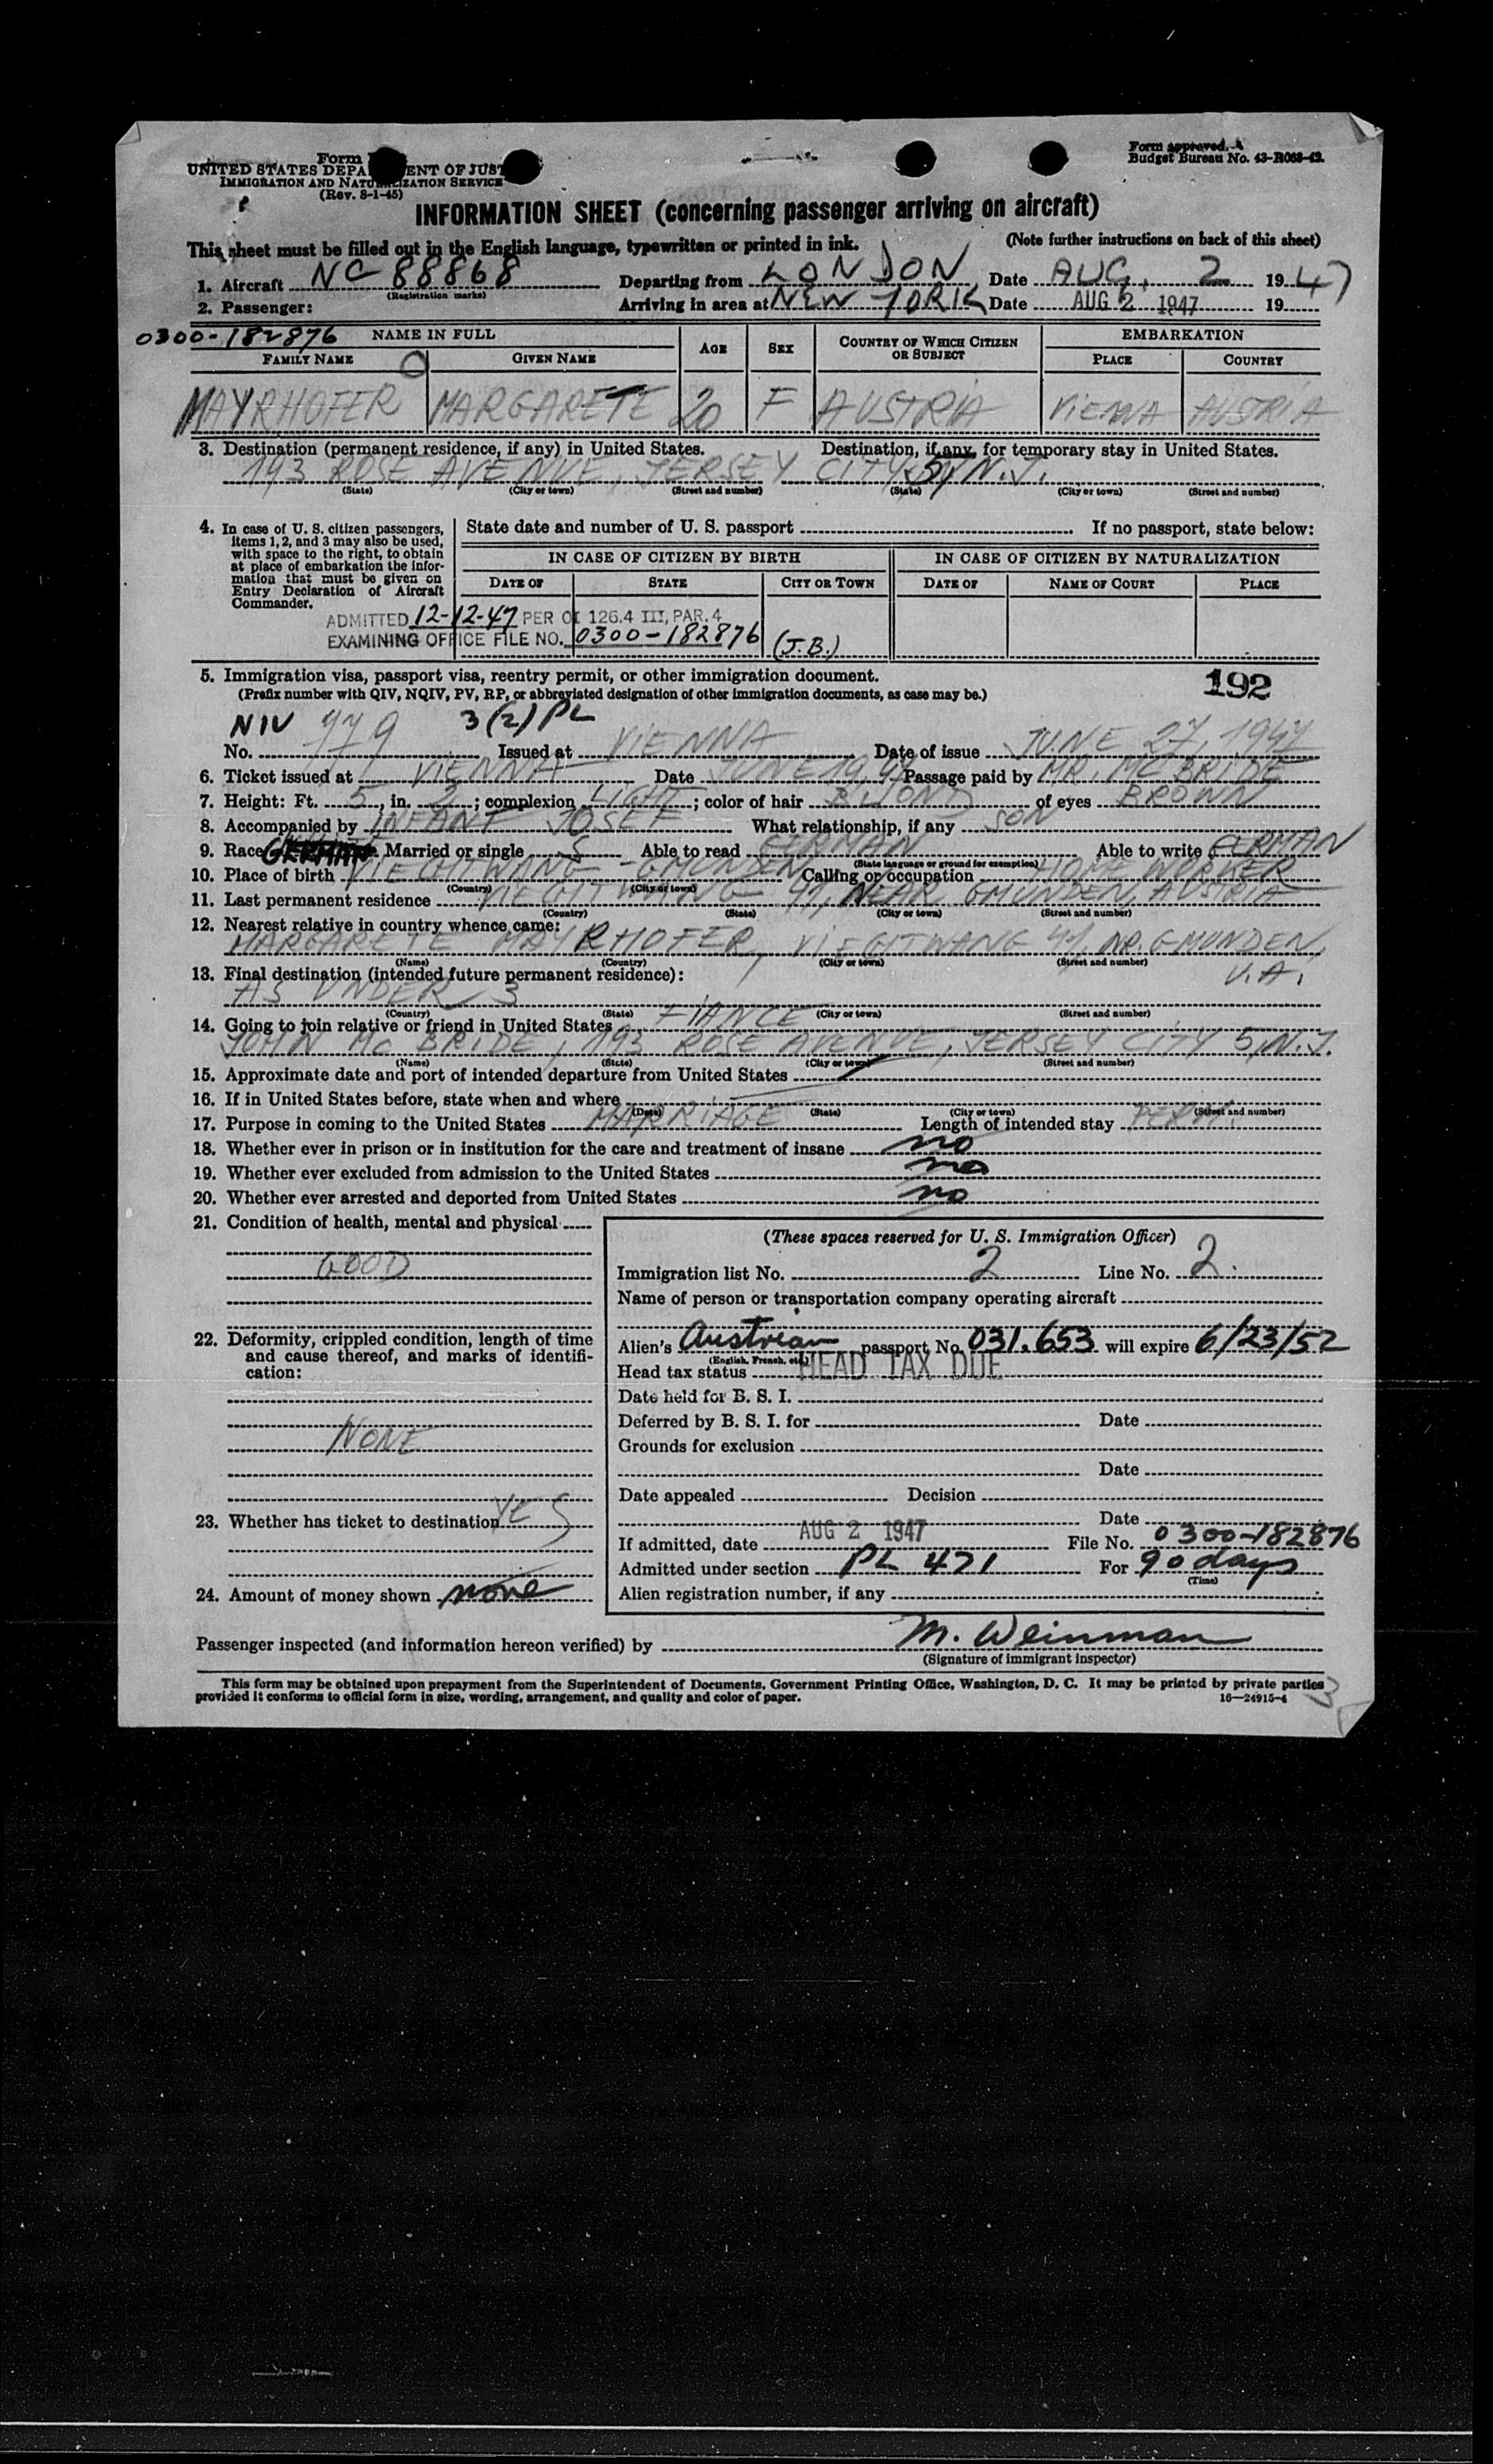 Form
Form approved.
Budget Bureau No. 43-R063-42.
UNITED STATES DEPA ENT OF JUST
IMMIGRATION AND NATURALIZATION SERVICE
(Rev. 8-1-45)
INFORMATION SHEET (concerning passenger arriving on aircraft)
This sheet must be filled out in the English language, typewritten or printed in ink.
(Note further instructions on back of this sheet)
1. Aircraft NC 88868 Departing from LONDON Date AUG, 2 1947
(Registration marks)
2. Passenger: Arriving in area at NEW YORK Date AUG 2 1947 19
0300-182876 NAME IN FULL AGE SEX COUNTRY OF WHICH CITIZEN OR SUBJECT EMBARKATION
FAMILY NAME GIVEN NAME PLACE COUNTRY
MAYRHOFER MARGARETE 20 F AUSTRIA VIENNA AUSTRIA
3. Destination (permanent residence, if any) in United States. Destination, if any, for temporary stay in United States.
193 ROSE AVENUE, JERSEY CITY 5, N.J.
(State) (City or town) (Street and number) (State) (City or town) (Street and number)
4. In case of U. S. citizen passengers, items 1, 2, and 3 may also be used, with space to the right, to obtain at place of embarkation the information that must be given on Entry Declaration of Aircraft Commander.
State date and number of U. S. passport If no passport, state below:
IN CASE OF CITIZEN BY BIRTH IN CASE OF CITIZEN BY NATURALIZATION
DATE OF STATE CITY OR TOWN DATE OF NAME OF COURT PLACE
ADMITTED 12-12-47 PER OI 126.4 III, PAR. 4
EXAMINING OFFICE FILE NO. 0300-182876 (J.B.)
5. Immigration visa, passport visa, reentry permit, or other immigration document. 192
(Prefix number with QIV, NQIV, PV, RP, or abbreviated designation of other immigration documents, as case may be.)
NIV 3(2) PL
No. 979 Issued at VIENNA Date of issue JUNE 27, 1947
6. Ticket issued at VIENNA Date JUNE 19, 47 Passage paid by MR. MC BRIDE
7. Height: Ft. 5, in. 2; complexion LIGHT; color of hair BLOND of eyes BROWN
8. Accompanied by INFANT JOSEF What relationship, if any SON
9. Race GERMAN Married or single S Able to read GERMAN Able to write GERMAN
(State language or ground for exemption)
10. Place of birth VIECHTWANG - GMUNDEN Calling or occupation HOME WORKER
(Country) (City or town)
11. Last permanent residence VIECHTWANG 41, NEAR GMUNDEN, AUSTRIA
(Country) (State) (City or town) (Street and number)
12. Nearest relative in country whence came:
MARGARETE MAYRHOFER, VIECHTWANG 41, NR. GMUNDEN,
(Name) (Country) (City or town) (Street and number)
13. Final destination (intended future permanent residence):
AS UNDER 3
(Country) (State) (City or town) (Street and number)
14. Going to join relative or friend in United States FIANCE
JOHN MC BRIDE, 193 ROSE AVENUE, JERSEY CITY 5, N.J.
(Name) (State) (City or town) (Street and number)
15. Approximate date and port of intended departure from United States
16. If in United States before, state when and where
(Date) (State) (City or town) (Street and number)
17. Purpose in coming to the United States MARRIAGE Length of intended stay PERM.
18. Whether ever in prison or in institution for the care and treatment of insane no
19. Whether ever excluded from admission to the United States no
20. Whether ever arrested and deported from United States no
21. Condition of health, mental and physical
GOOD
22. Deformity, crippled condition, length of time and cause thereof, and marks of identification:
NONE
23. Whether has ticket to destination YES
24. Amount of money shown none
(These spaces reserved for U. S. Immigration Officer)
Immigration list No. 2 Line No. 2.
Name of person or transportation company operating aircraft
Alien's Austrian passport No. 031.653 will expire 6/23/52
(English, French, etc.)
Head tax status HEAD TAX DUE
Date held for B. S. I.
Deferred by B. S. I. for Date
Grounds for exclusion
Date
Date appealed Decision
Date
If admitted, date AUG 2 1947 File No. 0300-182876
Admitted under section PL 471 For 90 days
(Time)
Alien registration number, if any
Passenger inspected (and information hereon verified) by M. Weinman
(Signature of immigrant inspector)
This form may be obtained upon prepayment from the Superintendent of Documents, Government Printing Office, Washington, D. C. It may be printed by private parties
provided it conforms to official form in size, wording, arrangement, and quality and color of paper. 16—24915-4